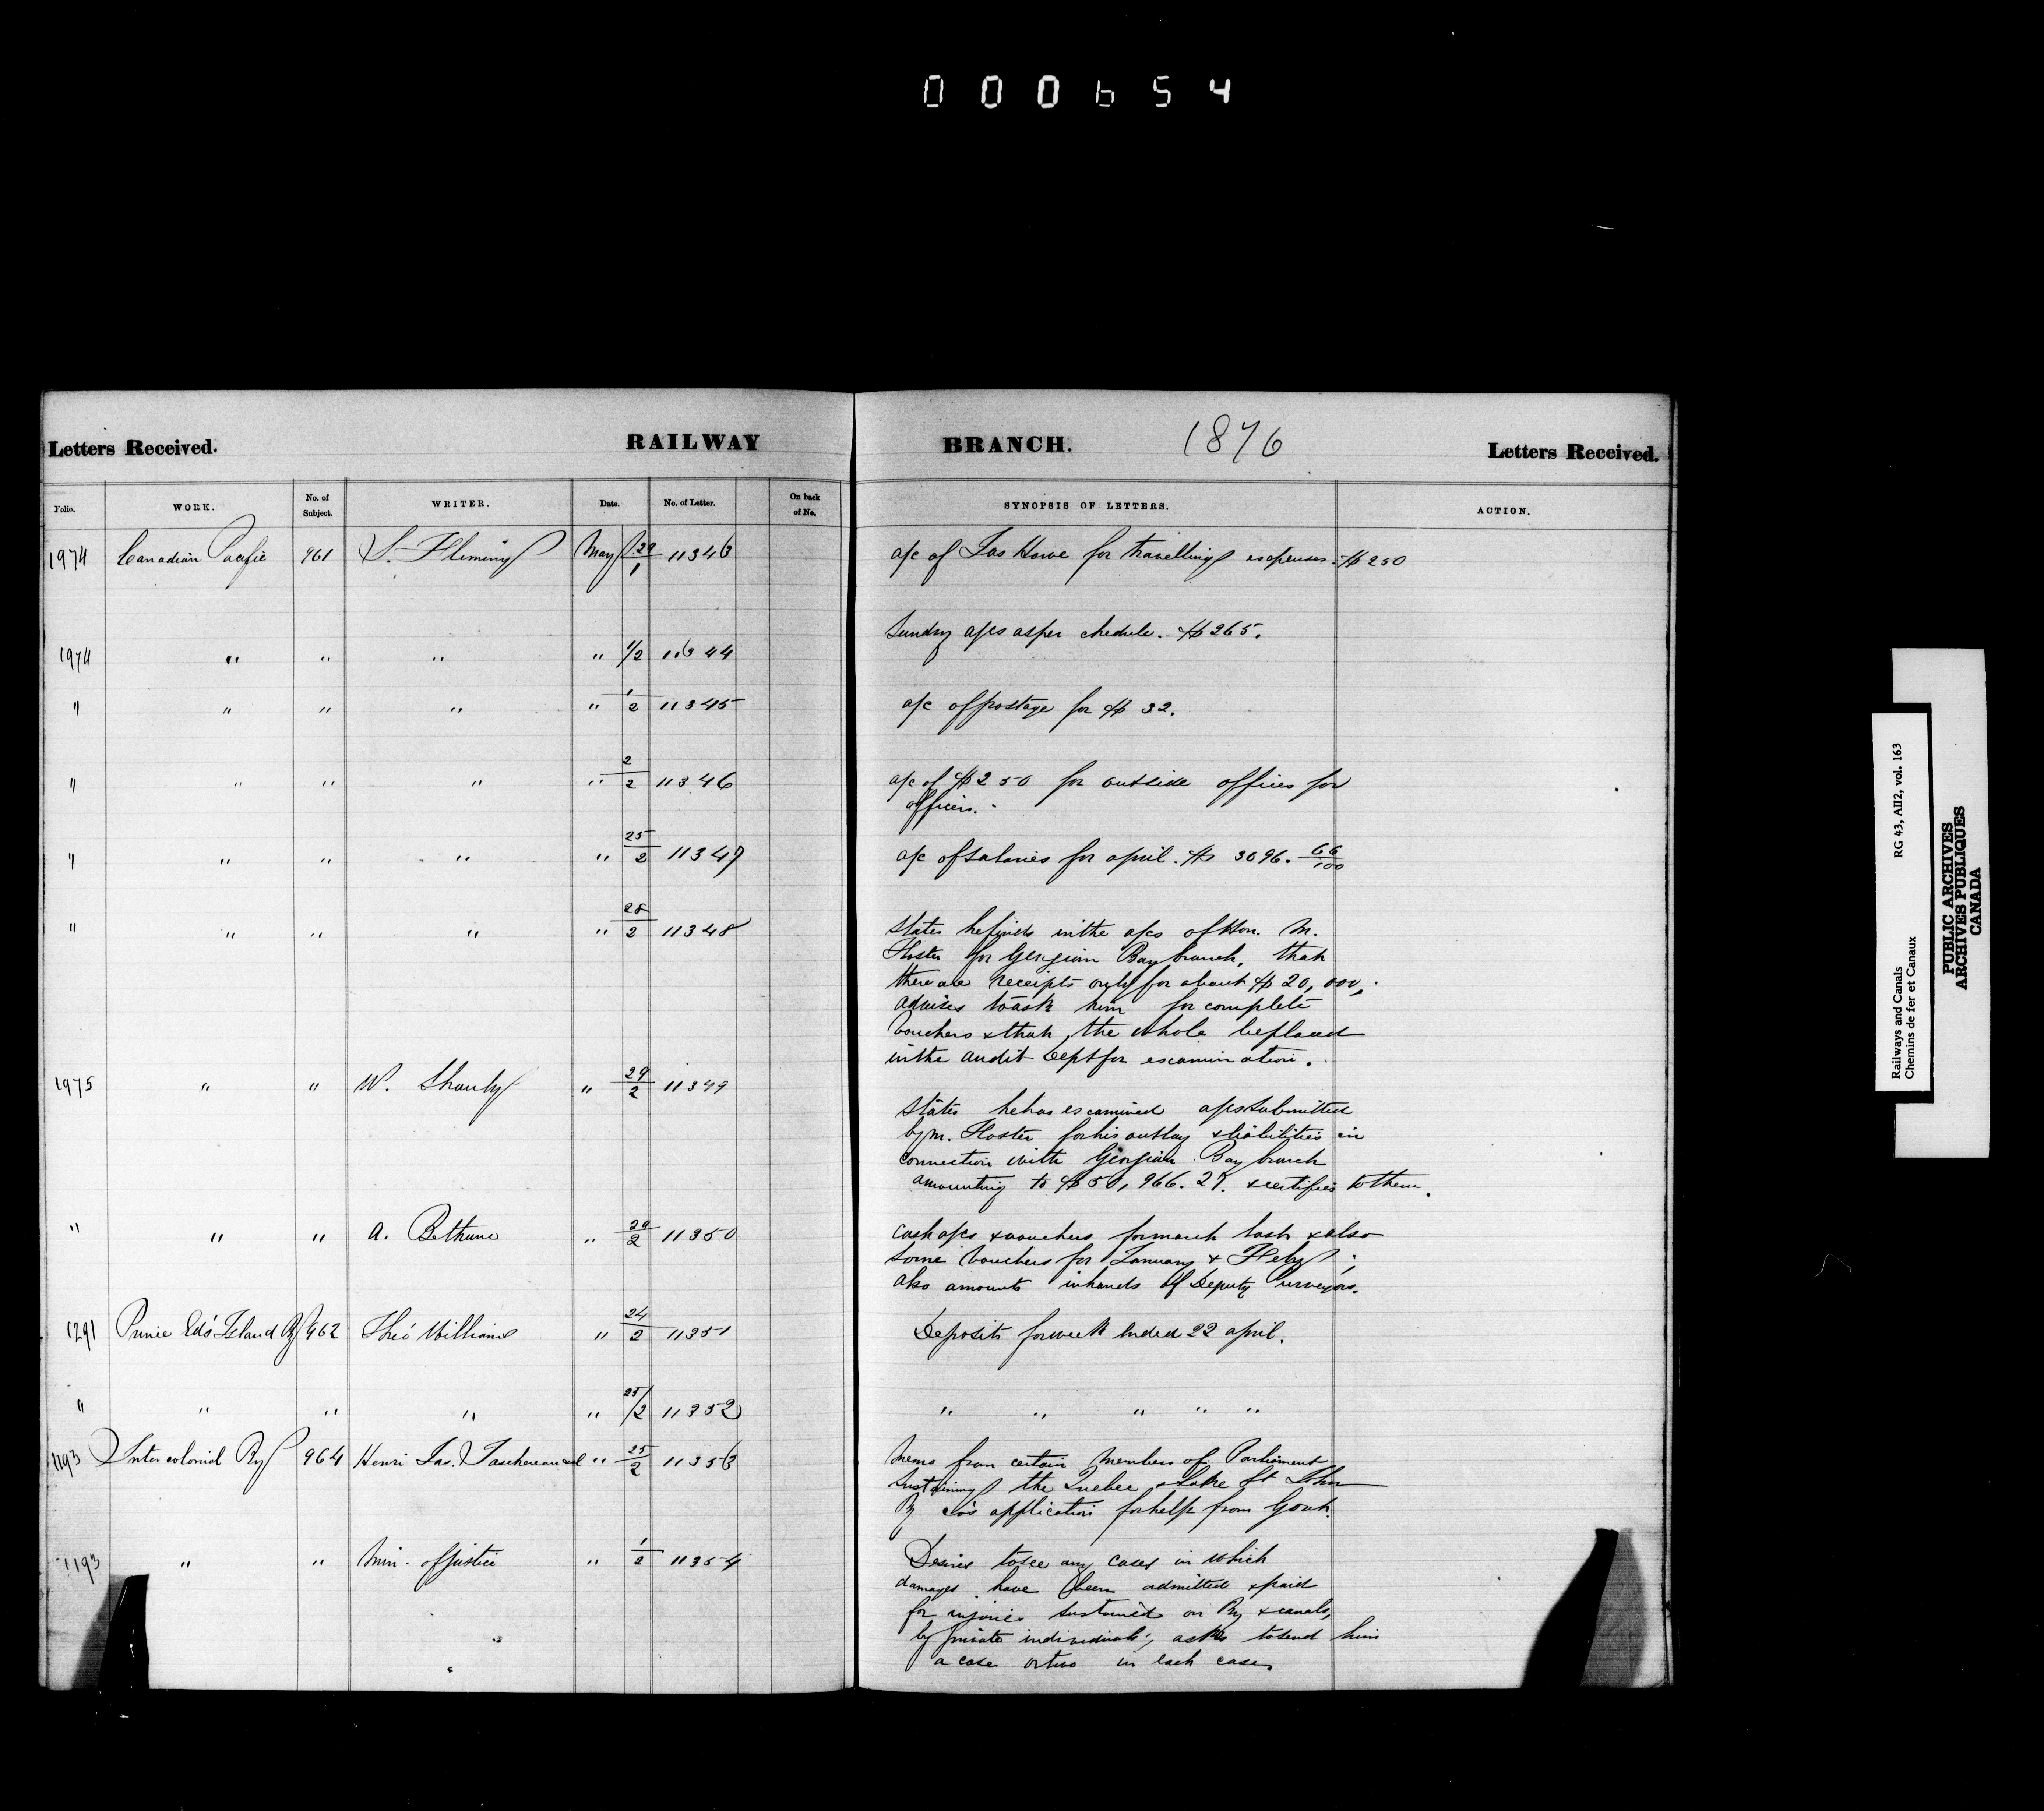 000654
Letters Received. RAILWAY BRANCH. 1876 Letters Received.
Folio. WORK. No. of Subject. WRITER. Date. No. of Letter. On back of No. SYNOPSIS OF LETTERS. ACTION.
1974 Canadian Pacific 961 S. Fleming May 29/1 11343 a/c of Jas Howe for travelling expenses. $250
1974 " " " " 1/2 11344 Sundry a/cs as per chedule. $265.
" " " " " 1/2 11345 a/c of postage for $32.
" " " " " 2/2 11346 a/c of $250 for outside offices for
officers.
" " " " " 25/2 11347 a/c of salaries for april. $3696. 66/100
" " " " " 28/2 11348 States he finds in the a/cs of Hon. M.
Foster for Georgian Bay branch, that
there are receipts only for about $20,000,
advises to ask him for complete
Vouchers & that the whole be placed
in the audit Dept for examination.
1975 " " W. Shanly " 29/2 11349 States he has examined a/cs submitted
by M. Foster for his outlay & liabilities in
connection with Georgian Bay branch
amounting to $50,966.27. & certifies to them.
" " " A. Bethune " 29/2 11350 Cash a/cs & vouchers for march last & also
some Vouchers for January & Feby;
also amounts in hands of Deputy Surveyors.
1291 Prince Ed's Island Ry 962 Theo Williams " 24/2 11351 Deposits for week ended 22 april.
" " " " " 25/2 11352 " " " " "
1193 Intercolonial Ry 964 Henri Jas. Taschereau " 25/2 11353 Memo from certain Members of Parliament
Sustaining the Quebec & Lake St John
Ry Co's application for help from Govt.
1193 " " Min. of Justice " 1/2 11354 Desires to see any cases in which
damages have been admitted & paid
for injuries sustained on Ry & canals,
by private individuals; asks to send him
a case or two in each case,
Railways and Canals RG 43, AII2, vol. 163
Chemins de fer et Canaux
PUBLIC ARCHIVES
ARCHIVES PUBLIQUES
CANADA